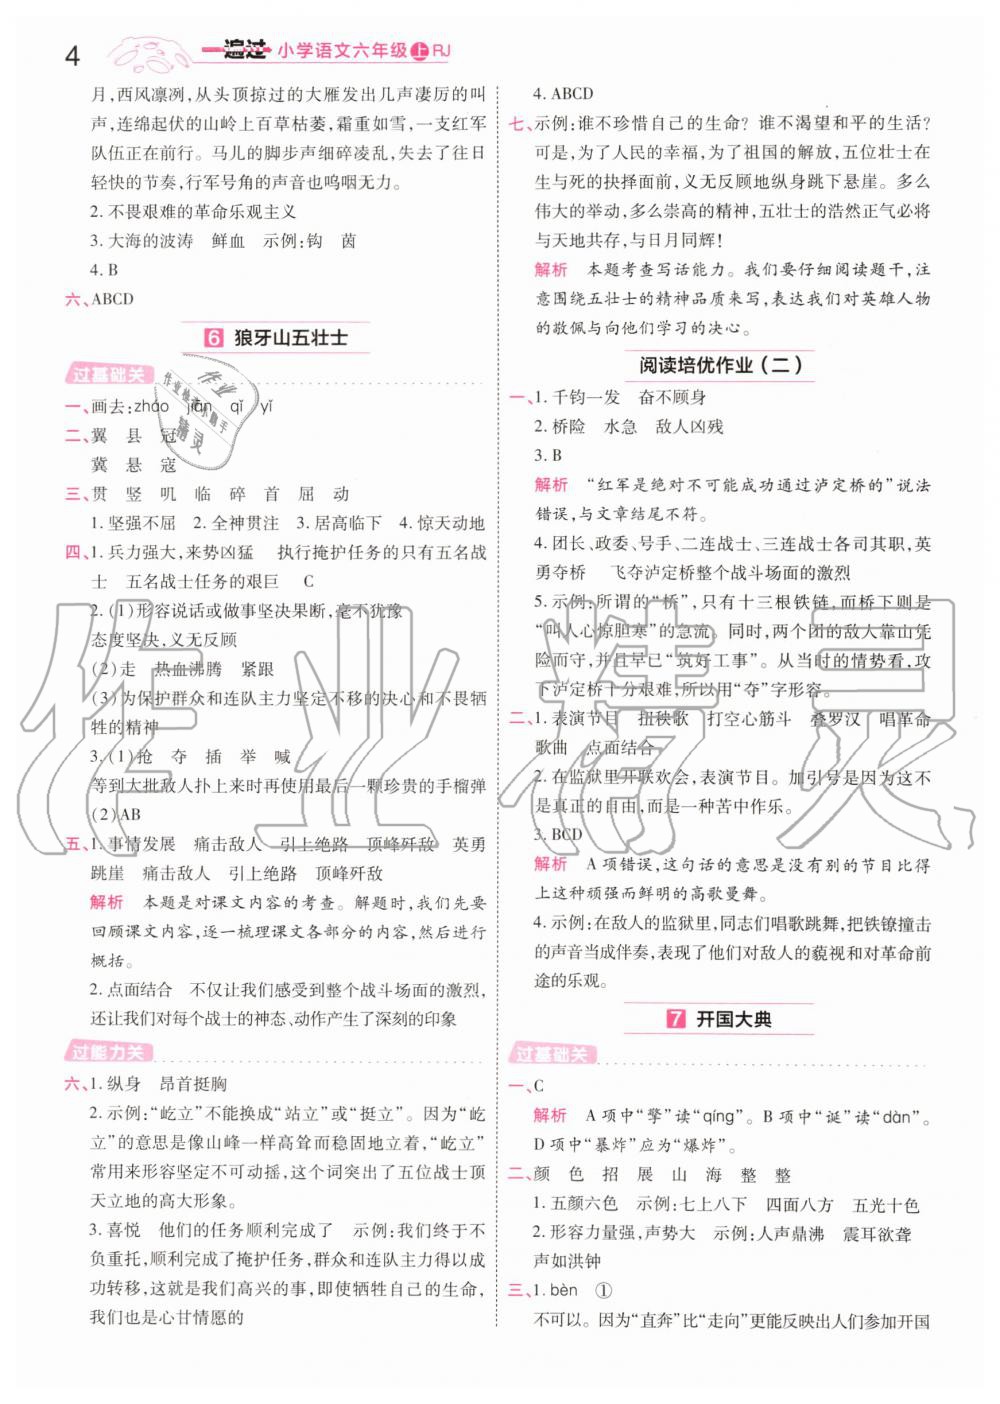 4
一遍过 小学语文六年级 上 RJ
月,西风凛冽,从头顶掠过的大雁发出几声凄厉的叫
声,连绵起伏的山岭上百草枯萎,霜重如雪,一支红军
队伍正在前行。马儿的脚步声细碎凌乱,失去了往日
轻快的节奏,行军号角的声音也呜咽无力。
2. 不畏艰难的革命乐观主义
3. 大海的波涛 鲜血 示例:钩 茵
4. B
六、ABCD
6 狼牙山五壮士
过基础关
一、画去:zháo jiān qǐ yǐ
二、翼 县 冠
冀 悬 寇
三、贯 竖 叽 临 碎 首 屈 动
1. 坚强不屈 2. 全神贯注 3. 居高临下 4. 惊天动地
四、1. 兵力强大,来势凶猛 执行掩护任务的只有五名战
士 五名战士任务的艰巨 C
2. (1)形容说话或做事坚决果断,毫不犹豫
态度坚决,义无反顾
(2)走 热血沸腾 紧跟
(3)为保护群众和连队主力坚定不移的决心和不畏牺
牲的精神
3. (1)抢 夺 插 举 喊
等到大批敌人扑上来时再使用最后一颗珍贵的手榴弹
(2)AB
五、1. 事情发展 痛击敌人 引上绝路 顶峰歼敌 英勇
跳崖 痛击敌人 引上绝路 顶峰歼敌
解析 本题是对课文内容的考查。解题时,我们先要
回顾课文内容,逐一梳理课文各部分的内容,然后进行
概括。
2. 点面结合 不仅让我们感受到整个战斗场面的激烈,
还让我们对每个战士的神态、动作产生了深刻的印象
过能力关
六、1. 纵身 昂首挺胸
2. 示例:“屹立”不能换成“站立”或“挺立”。因为“屹
立”的意思是像山峰一样高耸而稳固地立着,“屹立”
常用来形容坚定不可动摇,这个词突出了五位战士顶
天立地的高大形象。
3. 喜悦 他们的任务顺利完成了 示例:我们终于不
负重托,顺利完成了掩护任务,群众和连队主力得以成
功转移,这就是我们高兴的事,即使牺牲自己的生命,
我们也是心甘情愿的
4. ABCD
七、示例:谁不珍惜自己的生命?谁不渴望和平的生活?
可是,为了人民的幸福,为了祖国的解放,五位壮士在
生与死的抉择面前,义无反顾地纵身跳下悬崖。多么
伟大的举动,多么崇高的精神,五壮士的浩然正气必将
与天地共存,与日月同辉!
解析 本题考查写话能力。我们要仔细阅读题干,注
意围绕五壮士的精神品质来写,表达我们对英雄人物
的敬佩与向他们学习的决心。
阅读培优作业(二)
一、1. 千钧一发 奋不顾身
2. 桥险 水急 敌人凶残
3. B
解析 “红军是绝对不可能成功通过泸定桥的”说法
错误,与文章结尾不符。
4. 团长、政委、号手、二连战士、三连战士各司其职,英
勇夺桥 飞夺泸定桥整个战斗场面的激烈
5. 示例:所谓的“桥”,只有十三根铁链,而桥下则是
“叫人心惊胆寒”的急流。同时,两个团的敌人靠山凭
险而守,并且早已“筑好工事”。从当时的情势看,攻
下泸定桥十分艰难,所以用“夺”字形容。
二、1. 表演节目 扭秧歌 打空心筋斗 叠罗汉 唱革命
歌曲 点面结合
2. 在监狱里开联欢会,表演节目。加引号是因为这不
是真正的自由,而是一种苦中作乐。
3. BCD
解析 A 项错误,这句话的意思是没有别的节目比得
上这种顽强而鲜明的高歌曼舞。
4. 示例:在敌人的监狱里,同志们唱歌跳舞,把铁镣撞击
的声音当成伴奏,表现了他们对敌人的藐视和对革命前
途的乐观。
7 开国大典
过基础关
一、C
解析 A 项中“擎”读“qíng”。B 项中“诞”读“dàn”。
D 项中“暴炸”应为“爆炸”。
二、颜 色 招 展 山 海 整 整
1. 五颜六色 示例:七上八下 四面八方 五光十色
2. 形容力量强,声势大 示例:人声鼎沸 震耳欲聋
声如洪钟
三、1. bèn ①
不可以。因为“直奔”比“走向”更能反映出人们参加开国
作业精灵
作业检查小助手